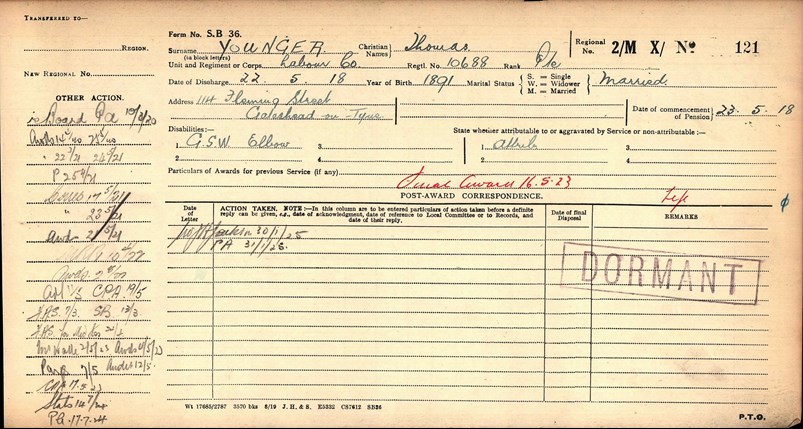 TRANSFERRED TO—
REGION.
NEW REGIONAL NO.
OTHER ACTION.
Board Pa
P 25
And
CPA 19/5
7/3. SB 13/3
2/5/23 Awds 4/5/23
7/5 12/5
17.5.23
Stats 14
PA. 17.7.24
Form No. S.B 36.
Surname YOUNGER. Christian Names Thomas. Regional No. 2/M X/ No 121
(in block letters)
Unit and Regiment or Corps Labour Co. Regtl. No. 10688 Rank Pte
Date of Discharge 22. 5. 18 Year of Birth 1891 Marital Status S. = Single W. = Widower M. = Married Married.
Address 114 Fleming Street
Gateshead-on-Tyne
Date of commencement of Pension 23. 5. 18
Disabilities:— State whether attributable to or aggravated by Service or non-attributable:—
1 G.S.W. Elbow 3 1 Attrib 3
2 4 2 4
Particulars of Awards for previous Service (if any)
Final Award 16.5.23
POST-AWARD CORRESPONDENCE. Life
Date of Letter
ACTION TAKEN. NOTE:—In this column are to be entered particulars of action taken before a definite reply can be given, e.g., date of acknowledgment, date of reference to Local Committee or to Records, and date of their reply.
Date of final Disposal
REMARKS
30/1/25
PA 31/1/25.
DORMANT
Wt 17685/2787 3570 bks 8/19 J. H. & S. E5332 CS7612 SB36
P.T.O.